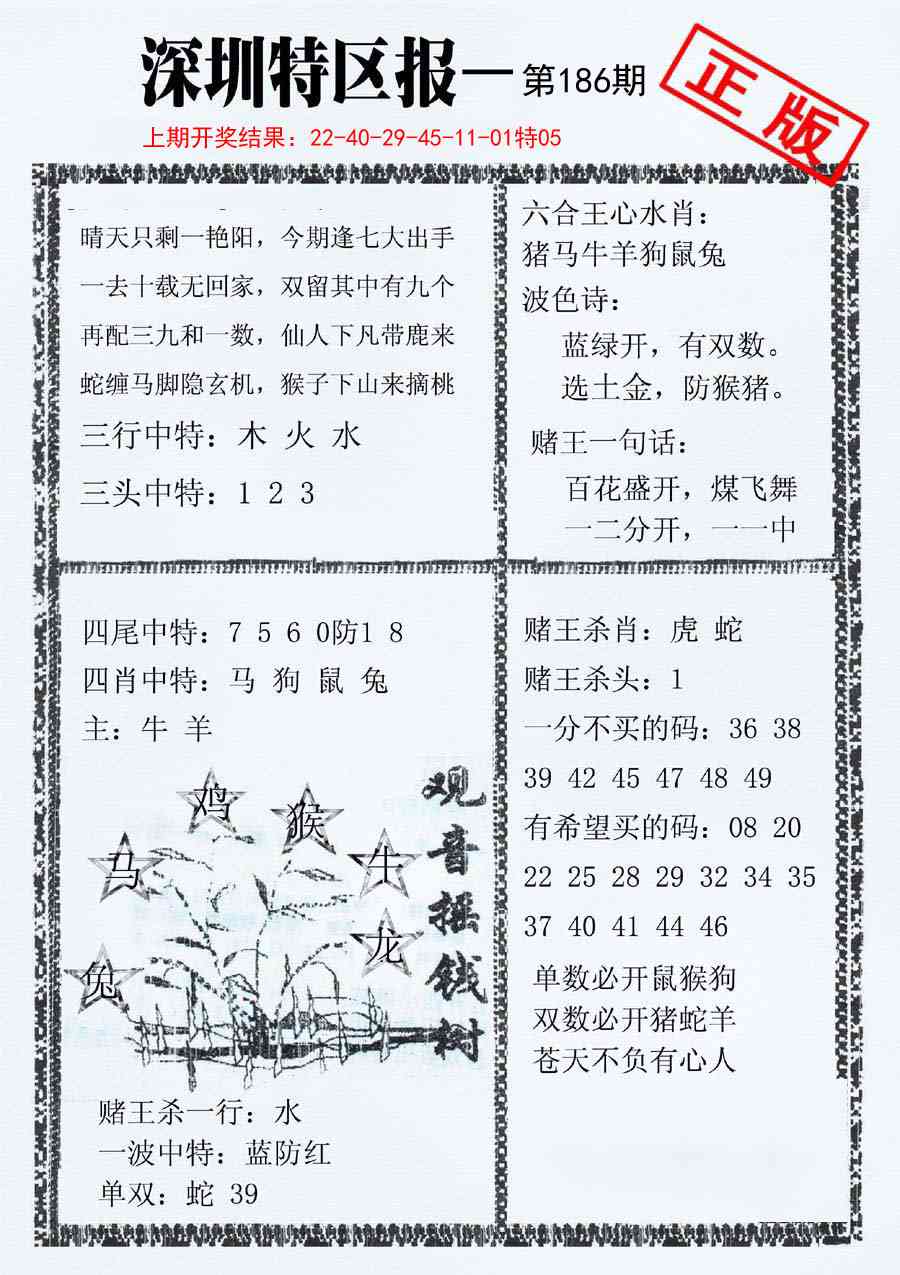 深圳特区报—第186期
正版
上期开奖结果：22-40-29-45-11-01特05
晴天只剩一艳阳，今期逢七大出手
一去十载无回家，双留其中有九个
再配三九和一数，仙人下凡带鹿来
蛇缠马脚隐玄机，猴子下山来摘桃
三行中特：木 火 水
三头中特：1 2 3
六合王心水肖：
猪马牛羊狗鼠兔
波色诗：
蓝绿开，有双数。
选土金，防猴猪。
赌王一句话：
百花盛开，煤飞舞
一二分开，一一中
四尾中特：7 5 6 0防1 8
四肖中特：马 狗 鼠 兔
主：牛 羊
鸡
猴
马
牛
龙
兔
观音摇钱树
赌王杀一行：水
一波中特：蓝防红
单双：蛇 39
赌王杀肖：虎 蛇
赌王杀头：1
一分不买的码：36 38
39 42 45 47 48 49
有希望买的码：08 20
22 25 28 29 32 34 35
37 40 41 44 46
单数必开鼠猴狗
双数必开猪蛇羊
苍天不负有心人